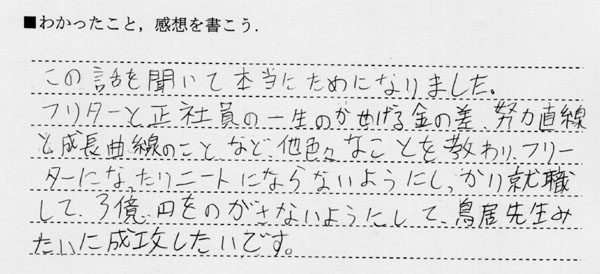 ■わかったこと，感想を書こう．
この話を聞いて本当にためになりました。
フリターと正社員の一生のかせげる金の差、努力直線
と成長曲線のこと、など、他色々なことを教わり、フリー
ターになったりニートにならないようにしっかり就職
して、3億円をのがさないようにして、鳥居先生み
たいに成功したいです。